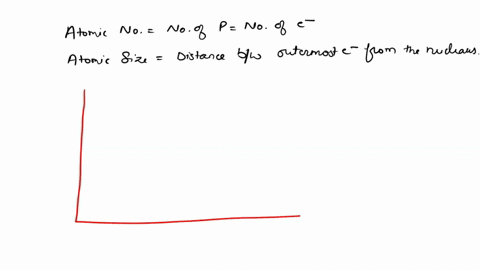 Atomic No. = No. of P = No. of e⁻
Atomic Size = Distance b/w outermost e⁻ from the nucleus.